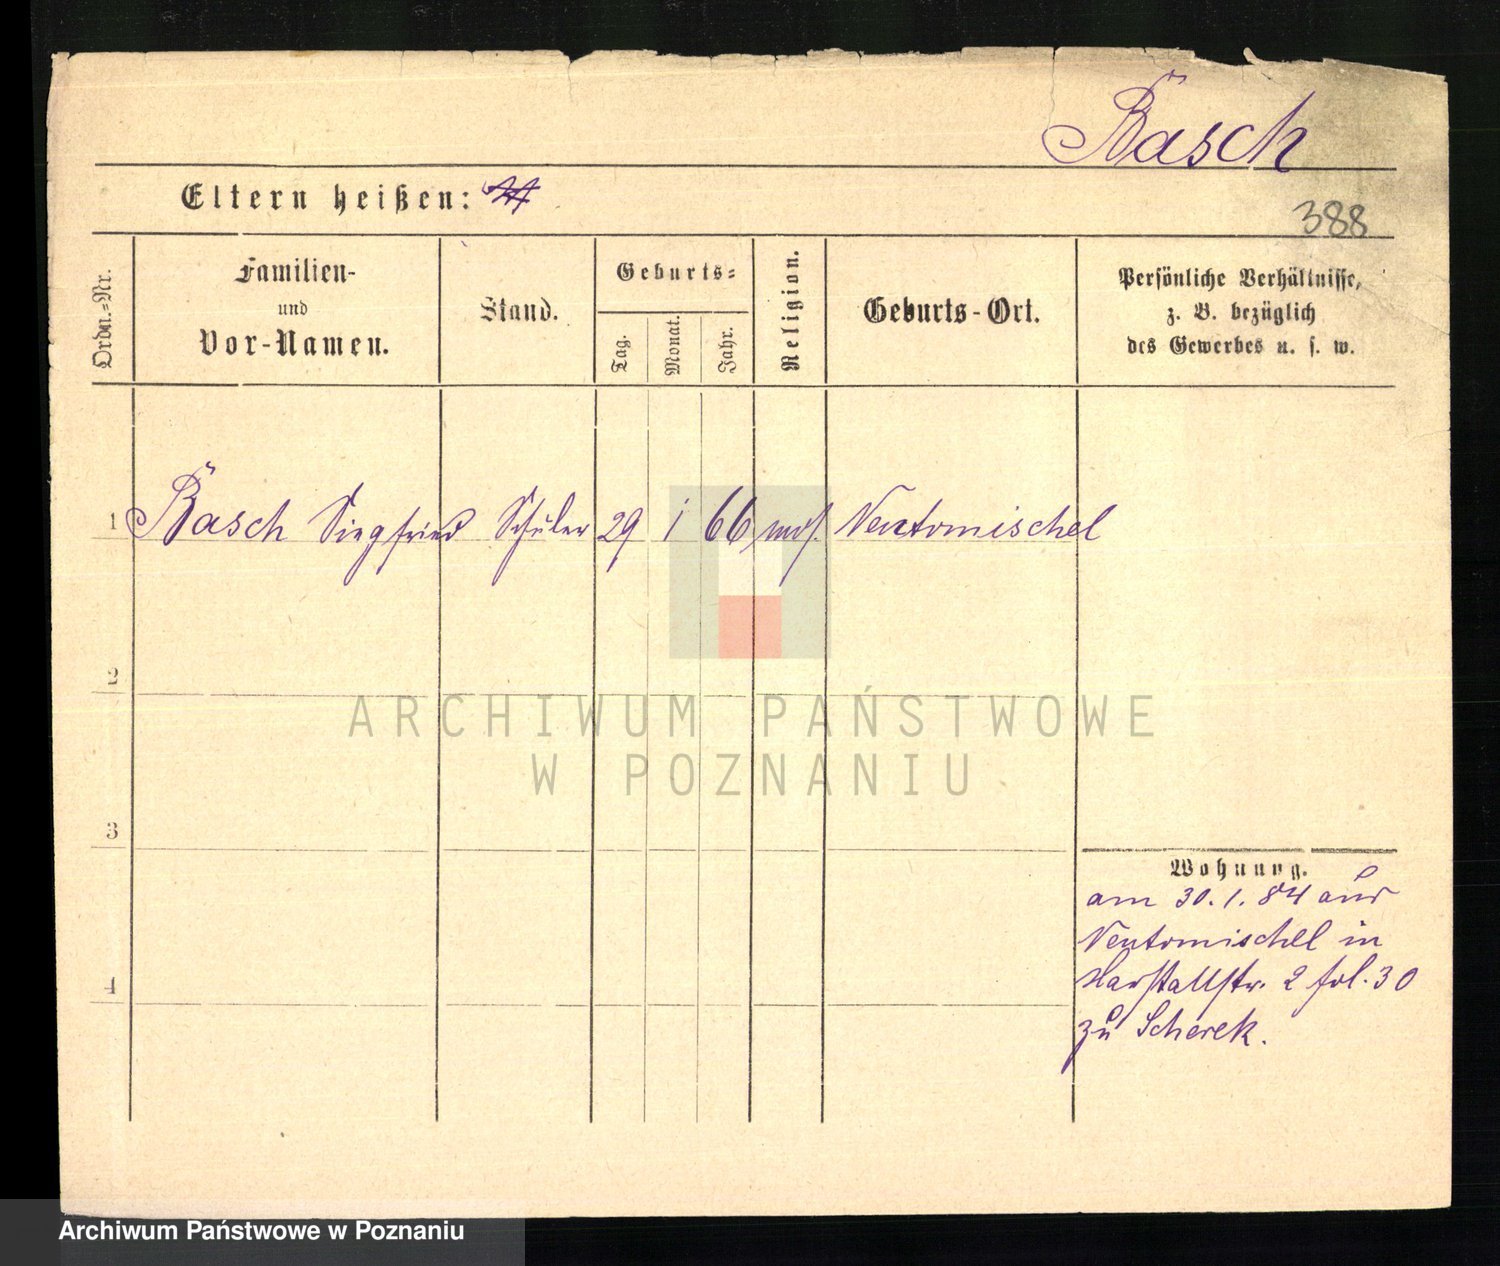 Basch
Eltern heißen:
388
Ordn.-Nr.
Familien-
und
Vor-Namen.
Stand.
Geburts-
Tag.
Monat.
Jahr.
Religion.
Geburts-Ort.
Persönliche Verhältnisse,
z. B. bezüglich
des Gewerbes u. s. w.
1 Basch Siegfried Schüler 29 1 66 mos. Neutomischel
2
3
4
Wohnung.
am 30.1.84 aus
Neutomischel in
Marstallstr. 2 fol. 30
zu Scherek.
ARCHIWUM PAŃSTWOWE
W POZNANIU
Archiwum Państwowe w Poznaniu